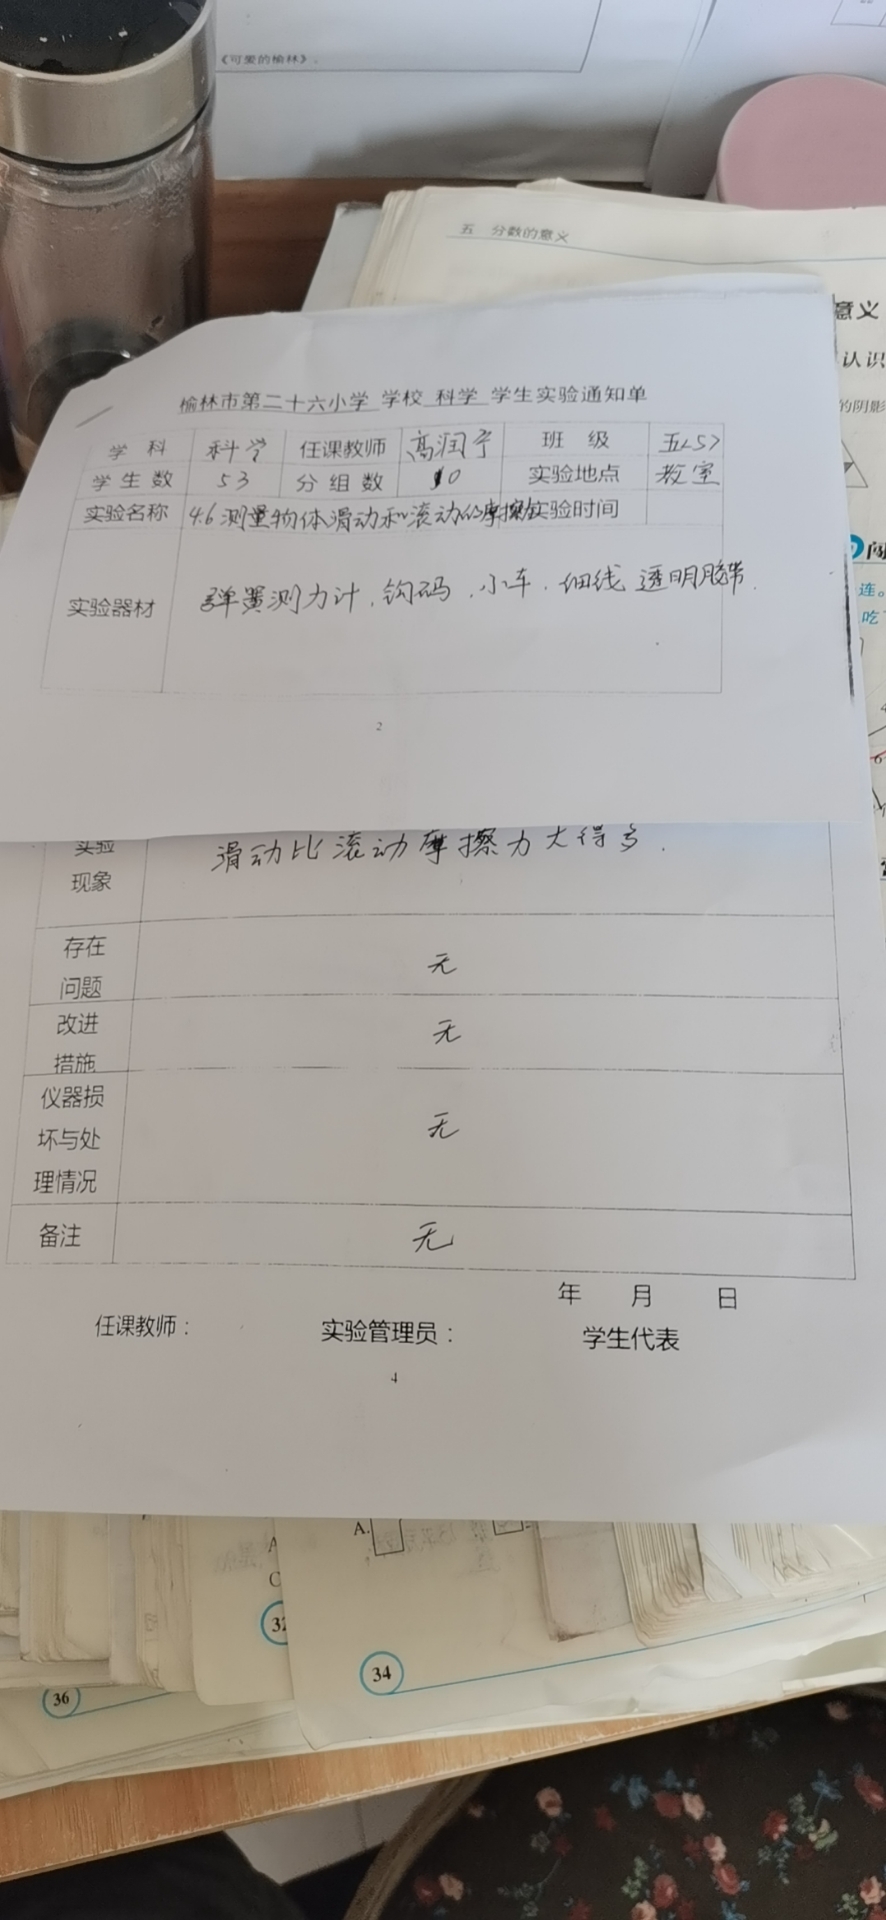 《可爱的榆林》.
五 分数的意义
意义
认识
的阴影
榆林市第二十六小学 学校 科学 学生实验通知单
学科 科学 任课教师 高润宇 班级 五<5>
学生数 53 分组数 10 实验地点 教室
实验名称 4.6测量物体滑动和滚动的摩擦力 实验时间
实验器材 弹簧测力计、钩码、小车、细线 透明胶带.
连。
吃
2
实验
现象
滑动比滚动摩擦力大得多.
存在
问题
无
改进
措施
无
仪器损
坏与处
理情况
无
备注 无
年 月 日
任课教师： 实验管理员： 学生代表
4
A.
A
C
32
34
36